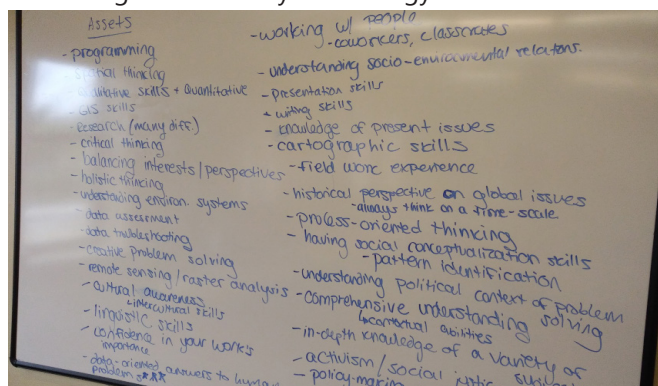 Assets
- programming
- spatial thinking
- qualitative skills + Quantitative
- GIS skills
- Research (many diff.)
- critical thinking
- balancing interests/perspectives
- holistic thinking
- understanding environ. systems
- data assessment
- data troubleshooting
- creative problem solving
- remote sensing/raster analysis
- cultural awareness
intercultural skills
- linguistic skills
- confidence in your work's
importance
- data-oriented answers to human
problems
- working w/ people
- coworkers, classmates
- understanding socio-environmental relations.
- presentation skills
- writing skills
- knowledge of present issues
- cartographic skills
- field work experience
- historical perspective on global issues
- always think on a time-scale
- process-oriented thinking
- having social conceptualization skills
- pattern identification
- understanding political context of problem
solving
- comprehensive understanding
contextual abilities
- in-depth knowledge of a variety of
- activism/social
- policy-making